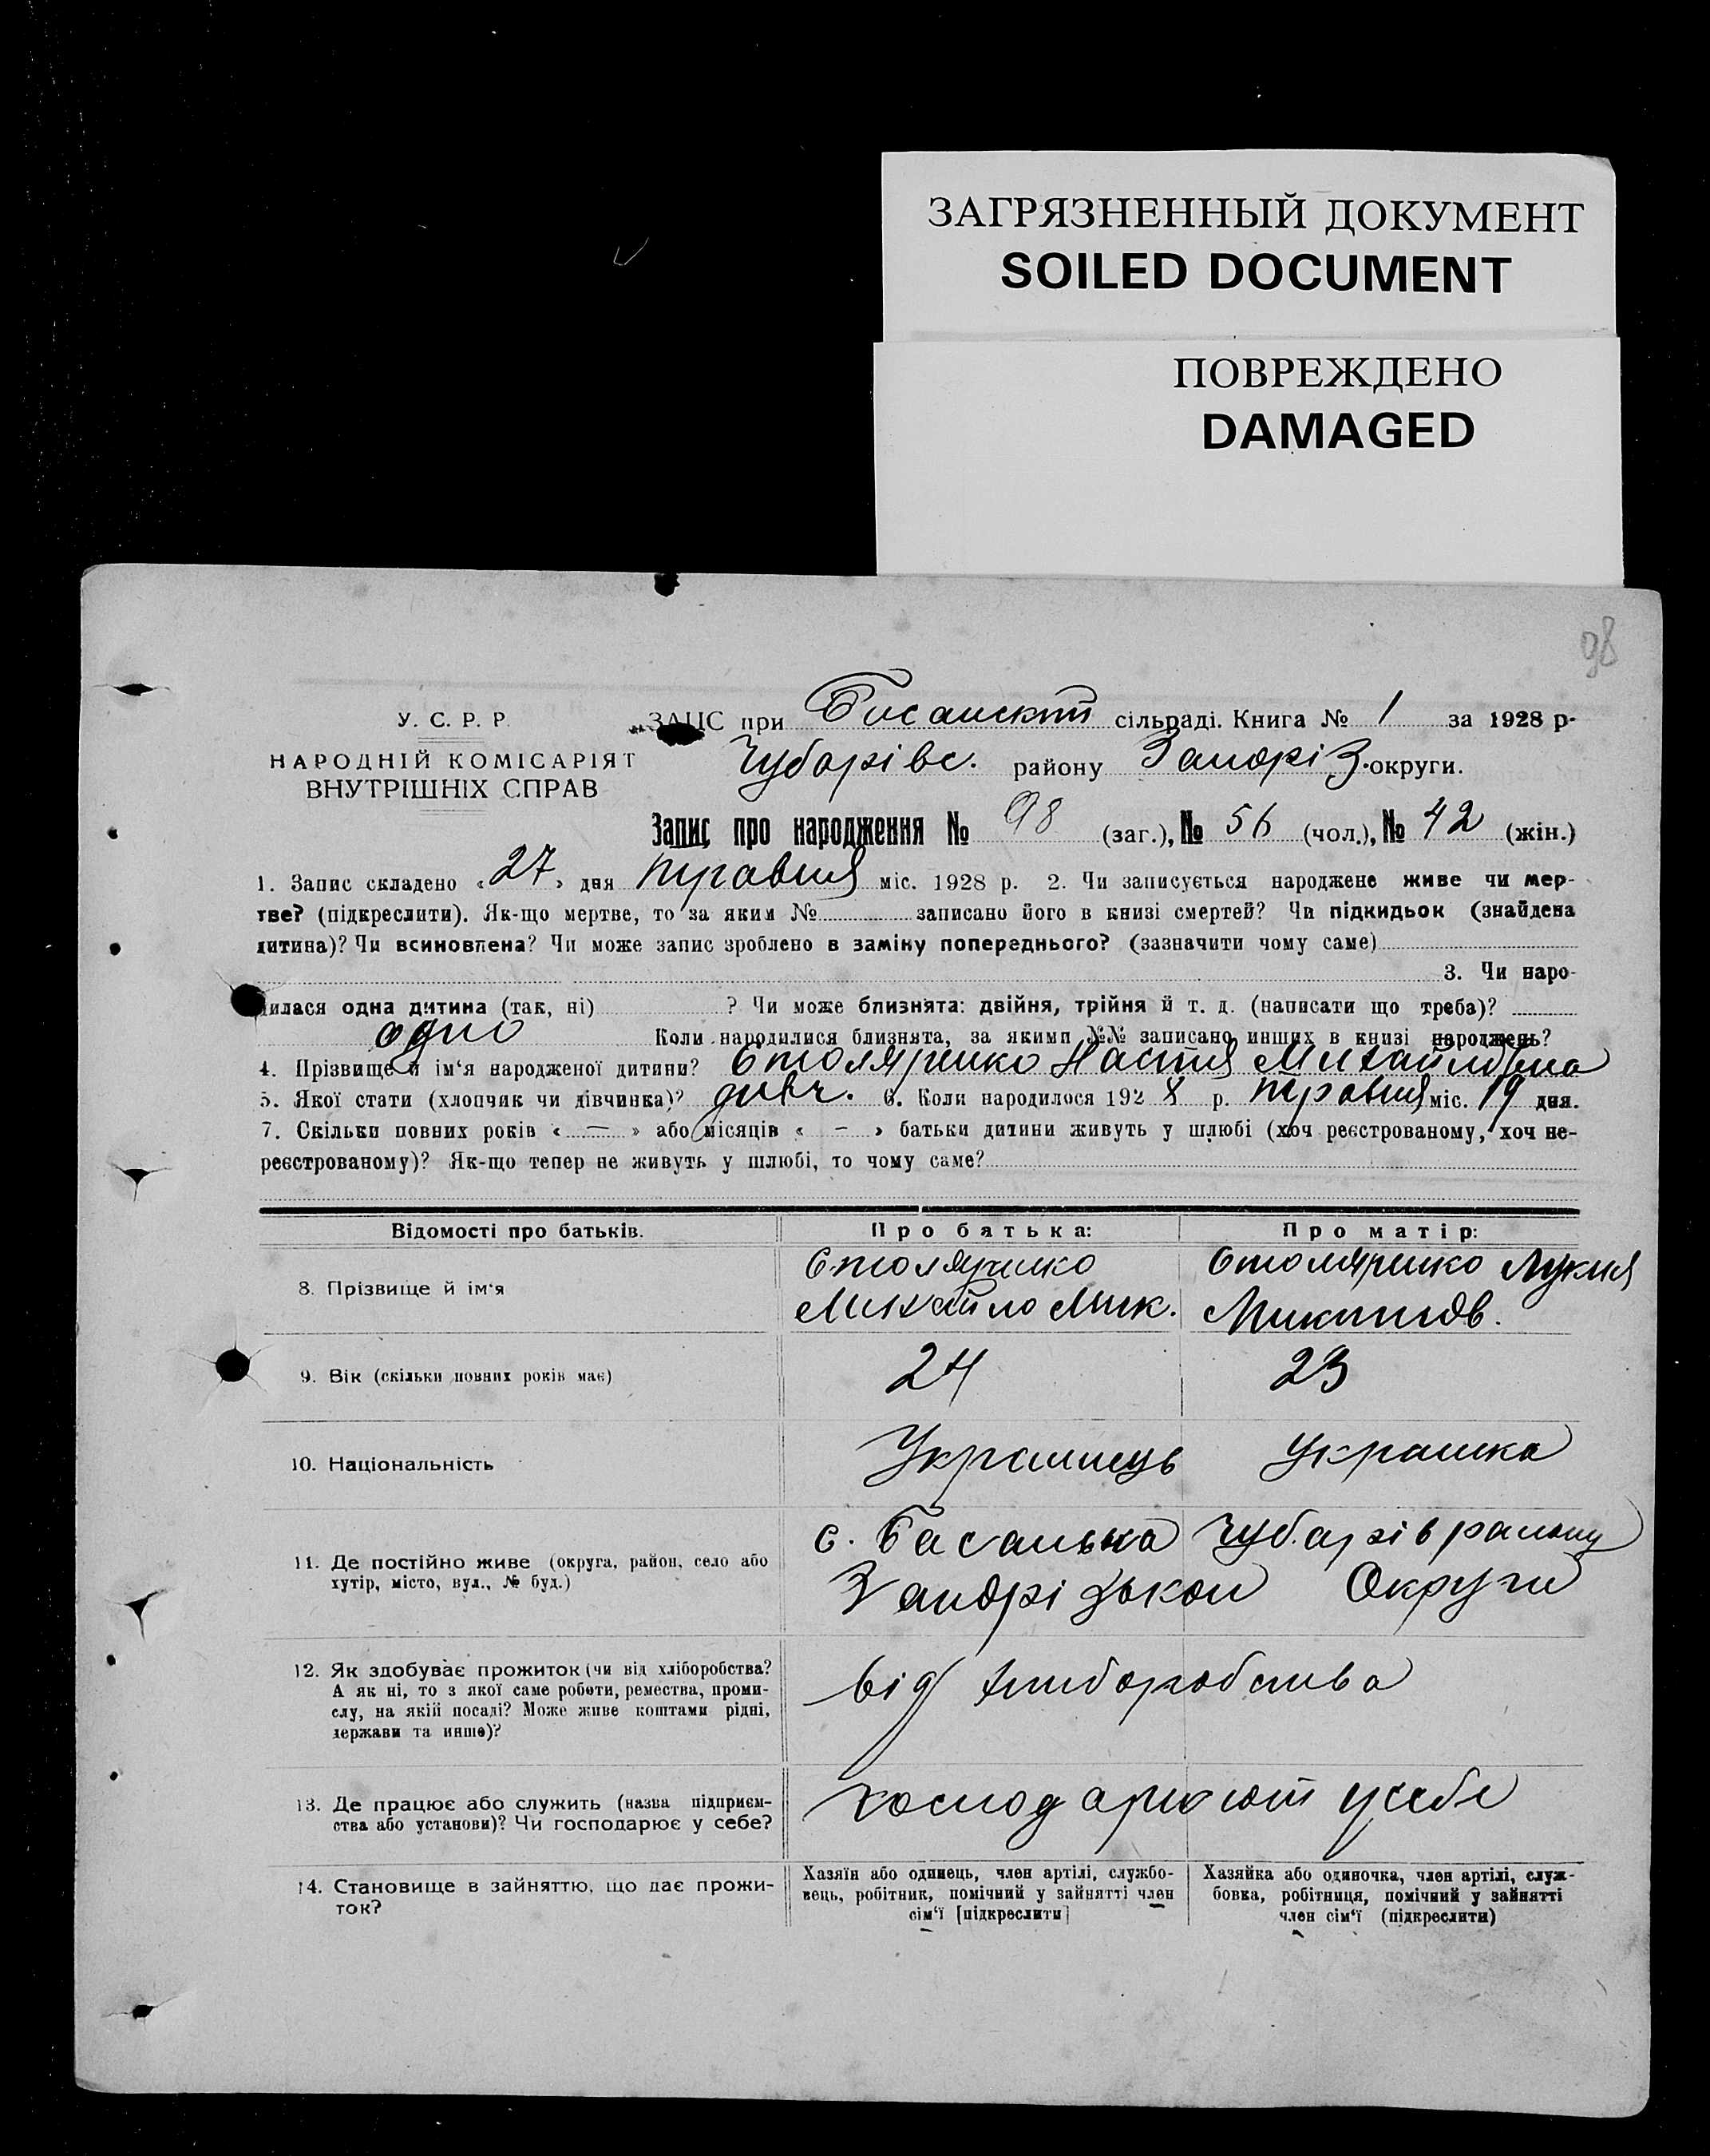 ЗАГРЯЗНЕННЫЙ ДОКУМЕНТ
SOILED DOCUMENT
ПОВРЕЖДЕНО
DAMAGED
98
У. С. Р. Р.
НАРОДНІЙ КОМІСАРІЯТ
ВНУТРІШНІХ СПРАВ
ЗАГС при Басанскій сільраді. Книга № 1 за 1928 р-
Чубарівс. району Запоріз. округи.
Запис про народження № 98 (заг.), № 56 (чол.), № 42 (жін.)
1. Запис складено «27» дня травня міс. 1928 р. 2. Чи записується народжене живе чи мер-
тве? (підкреслити). Як-що мертве, то за яким № записано його в книзі смертей? Чи підкидьок (знайдена
дитина)? Чи всиновлена? Чи може запис зроблено в заміну попереднього? (зазначити чому саме)
3. Чи наро-
дилася одна дитина (так, ні) ? Чи може близнята: двійня, трійня й т. д. (написати що треба)?
одно Коли народилися близнята, за якими №№ записано инших в книзі народжень?
4. Прізвище й ім‘я народженої дитини? Столяренко Настя Михайловна
5. Якої стати (хлопчик чи дівчинка)? дивч. 6. Коли народилося 1928 р. травня міс. 19 дня.
7. Скільки повних років « — » або місяців « — » батьки дитини живуть у шлюбі (хоч реєстрованому, хоч не-
реєстрованому)? Як-що тепер не живуть у шлюбі, то чому саме?
Відомості про батьків. Про батька: Про матір:
8. Прізвище й ім‘я
Столяренко
Михайло Мик.
Столяренко Лукия
Микитов.
9. Вік (скільки повних років має) 24 23
10. Національність Украинець Украинка
11. Де постійно живе (округа, район, село або
хутір, місто, вул., № буд.)
с. Басанька Чубарів району
Запорізькои Округи
12. Як здобуває прожиток (чи від хліборобства?
А як ні, то з якої саме роботи, ремества, проми-
слу, на якій посаді? Може живе коштами рідні,
держави та инше)?
від хлиборобства
13. Де працює або служить (назва підприєм-
ства або установи)? Чи господарює у себе?
хосподарюют у себе
14. Становище в зайняттю, що дає прожи-
ток?
Хазяїн або одинець, член артілі, службо-
вець, робітник, помічний у зайнятті член
сім‘ї [підкреслити]
Хазяйка або одиночка, член артілі, служ-
бовка, робітниця, помічний у зайнятті
член сім‘ї (підкреслити)